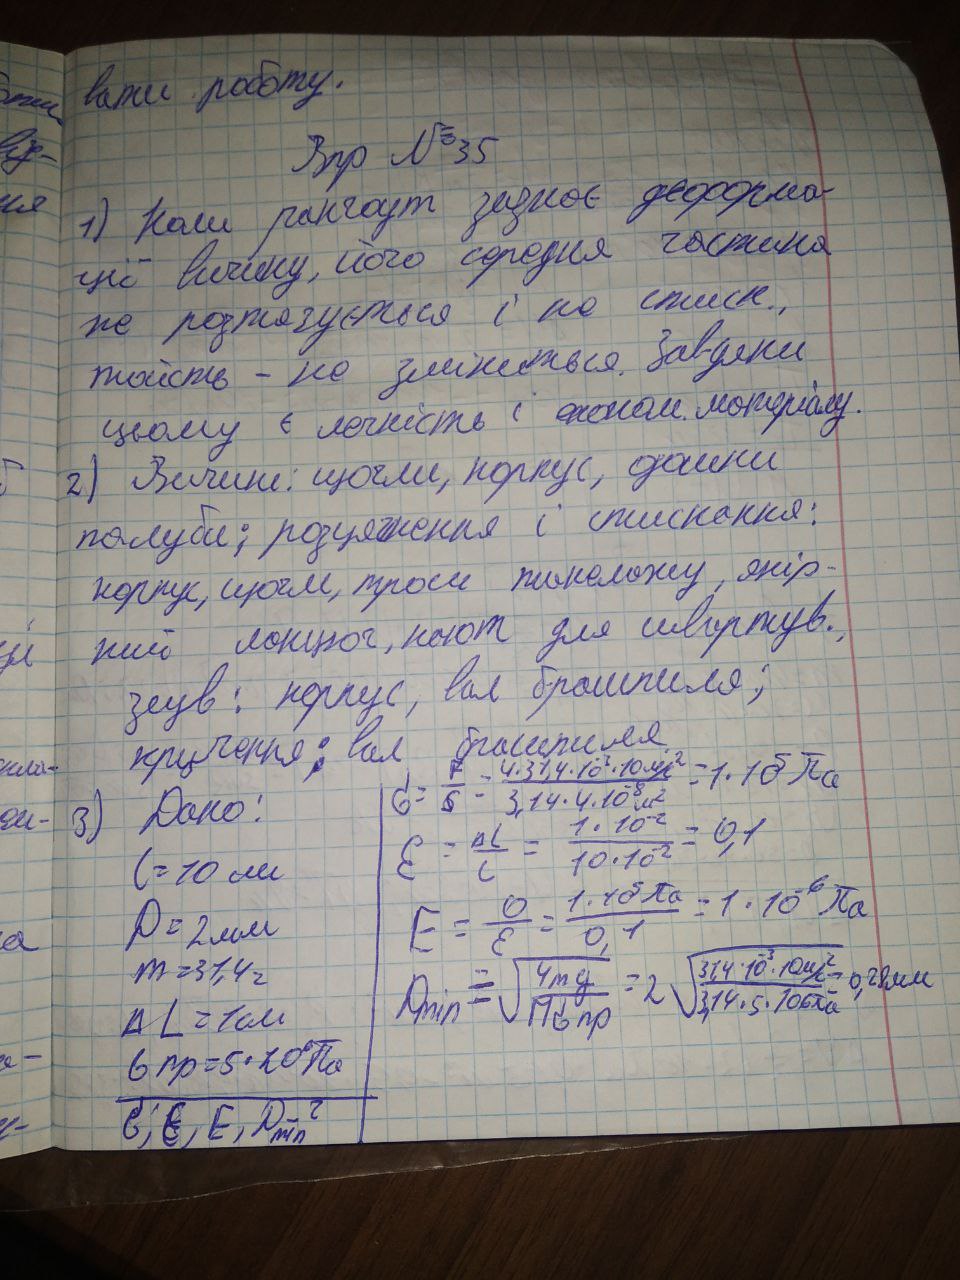 вати роботу.
Впр №35
1) Коли рангоут зазнає деформа-
ції вигину, його середня частина
не розтягується і не стиск.,
тойсть - не змінюється. Завдяки
цьому є легкість і економ. матеріалу.
2) Вигин: щогли, корпус, дошки
палуби; розтяження і стискання:
корпус, щогли, троси такелажу, якір-
ний ланцюг, канат для швартув.,
зсув: корпус, вал брашпиля;
кручення: вал брашпиля
3) Дано:
l=10 см
D=2мм
m=31,4г
ΔL=1см
σ пр=5·10⁶Па
σ, ε, E, Dmin-?
σ = F/S = 4·31,4·10⁻³·10м/с²/3,14·4·10⁻⁶м² = 1·10⁵Па
ε = ΔL/L = 1·10⁻²/10·10⁻² = 0,1
E = σ/ε = 1·10⁵Па/0,1 = 1·10⁶Па
Dmin = √4mg/πσпр = 2√31,4·10⁻³·10м/с²/3,14·5·10⁶Па = 0,28мм